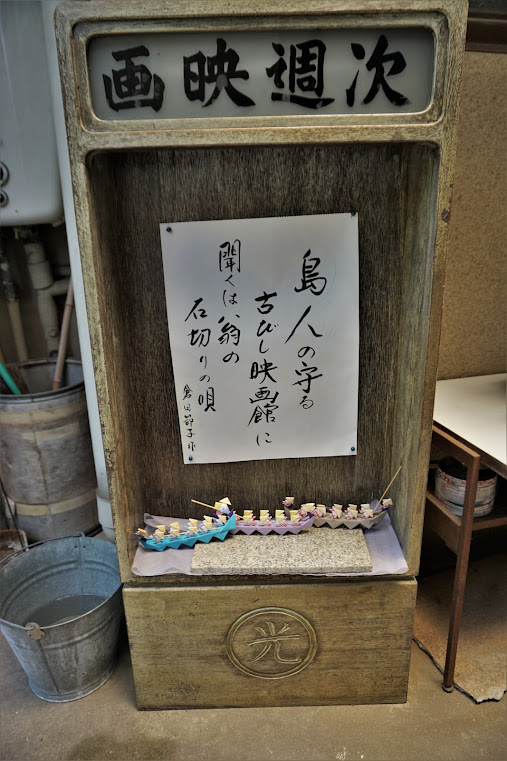 次週映画
島人の守る
古びし映画館に
聞くは翁の
石切りの唄
倉田節子作
光